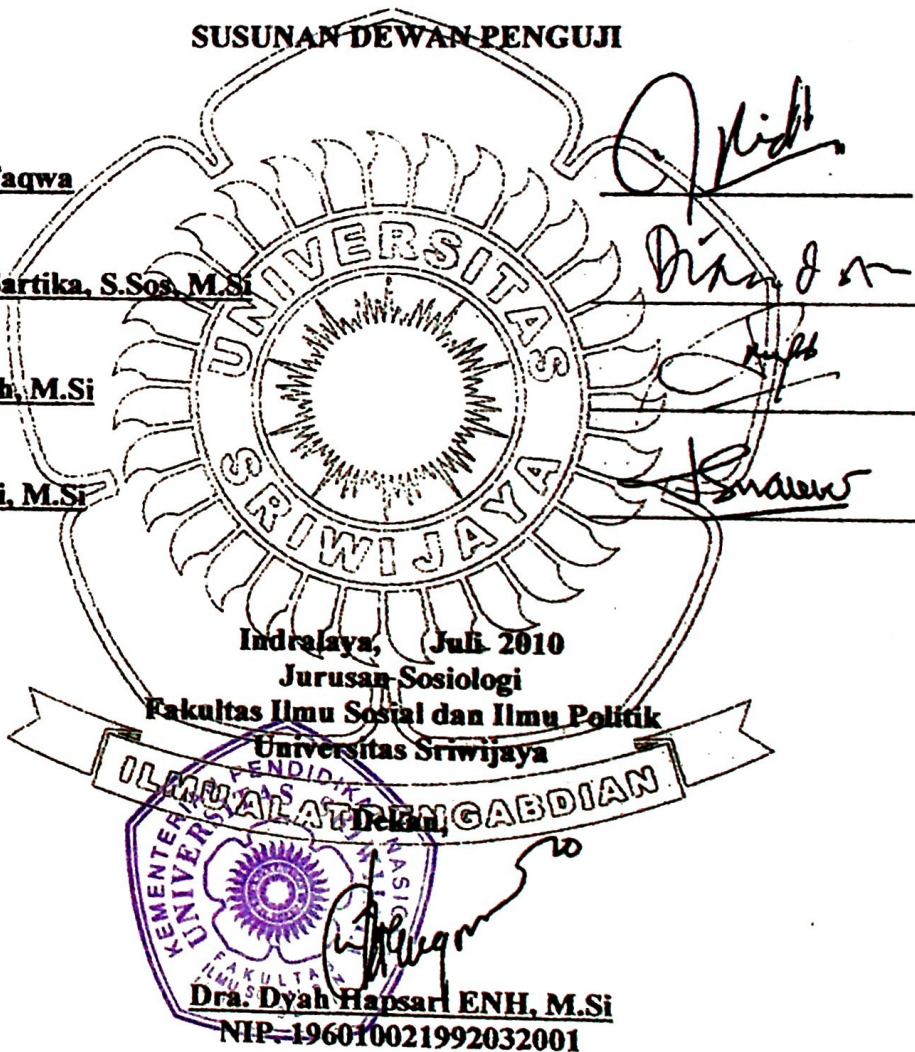 SUSUNAN DEWAN PENGUJI
Taqwa
artika, S.Sos, M.Si
h, M.Si
i, M.Si
UNIVERSITAS
SRIWIJAYA
Indralaya, Juli 2010
Jurusan Sosiologi
Fakultas Ilmu Sosial dan Ilmu Politik
Universitas Sriwijaya
ILMU ALAT PENGABDIAN
Dekan,
KEMENTERIAN PENDIDIKAN NASIO
UNIVERSITAS
FAKULTA
ILMU SO
Dra. Dyah Hapsari ENH, M.Si
NIP. 196010021992032001